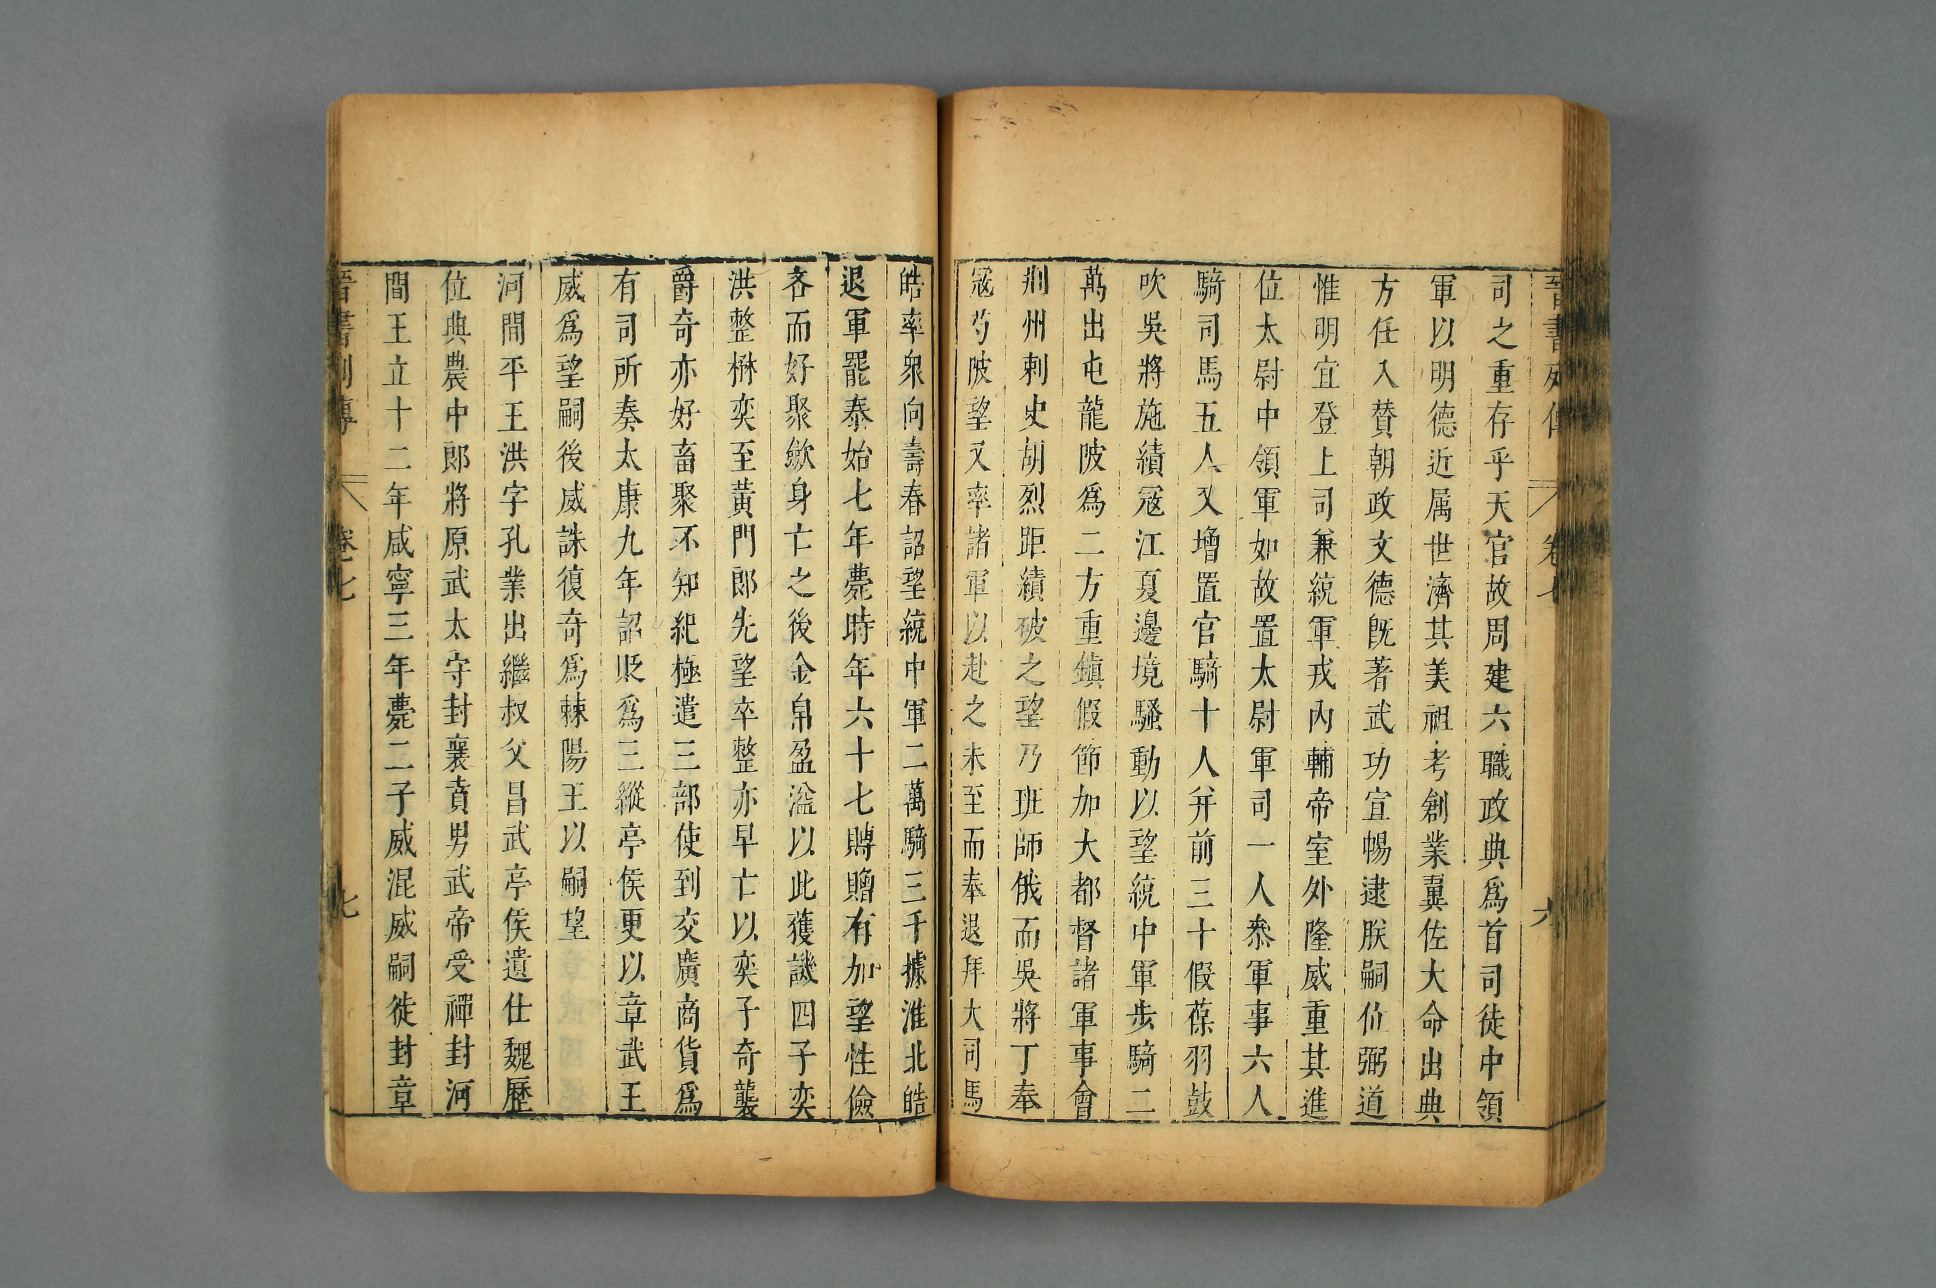 晉書列傳 卷七 六
司之重存乎天官故周建六職政典爲首司徒中領
軍以明德近属世濟其美祖考創業翼佐大命出典
方任入贊朝政文德旣著武功宣暢逮朕嗣位弼道
惟明宜登上司兼統軍戎內輔帝室外隆威重其進
位太尉中領軍如故置太尉軍司一人叅軍事六人
騎司馬五人又增置官騎十人并前三十假葆羽鼓
吹吳將施績寇江夏邊境騷動以望統中軍步騎二
萬出屯龍陂爲二方重鎮假節加大都督諸軍事會
荆州刺史胡烈距績破之望乃班師俄而吳將丁奉
寇芍陂望又率諸軍以赴之未至而奉退拜大司馬
皓率衆向壽春詔望統中軍二萬騎三千據淮北皓
退軍罷泰始七年薨時年六十七賻贈有加望性儉
吝而好聚斂身亡之後金帛盈溢以此獲譏四子奕
洪整楙奕至黃門郎先望卒整亦早亡以奕子奇襲
爵奇亦好畜聚不知紀極遣三部使到交廣商貨爲
有司所奏太康九年詔貶爲三縱亭侯更以章武王
威爲望嗣後威誅復奇爲棘陽王以嗣望
河間平王洪字孔業出繼叔父昌武亭侯遺仕魏歷
位典農中郎將原武太守封襄賁男武帝受禪封河
間王立十二年咸寧三年薨二子威混威嗣徙封章
晉書列傳 卷七 七